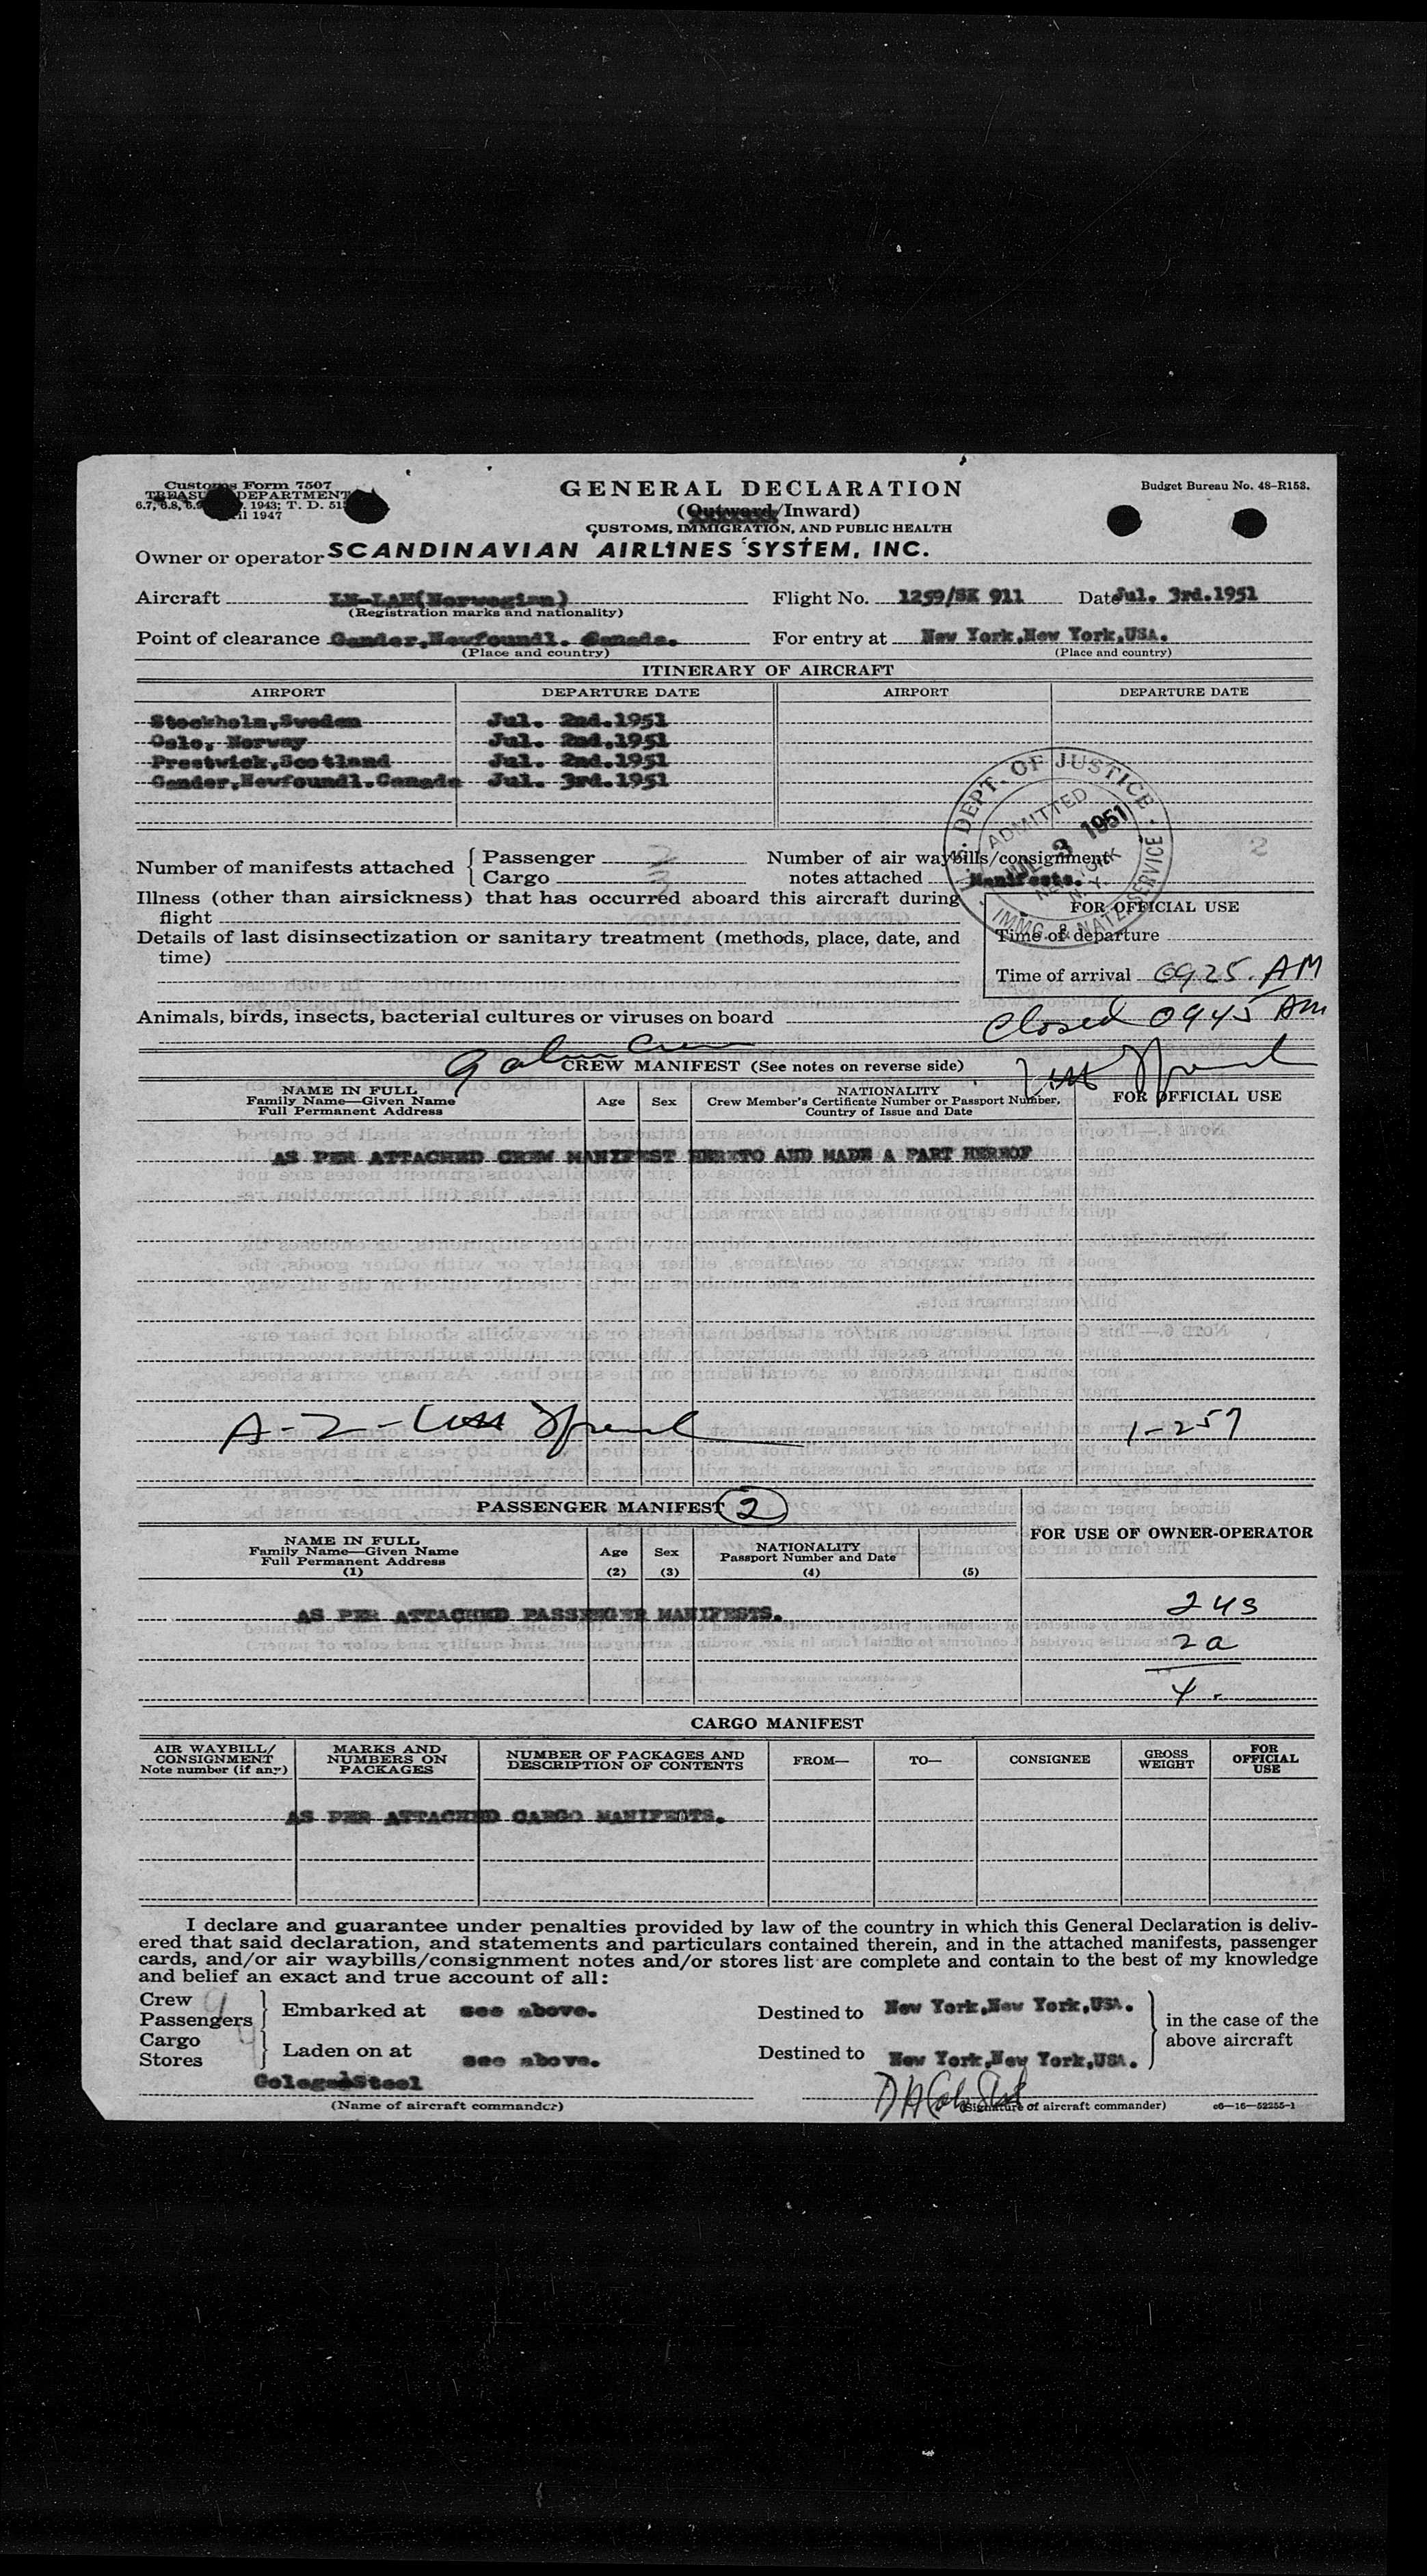 Customs Form 7507
TREASU DEPARTMENT
6.7, 6.8, 6.9 1943; T. D. 51
il 1947
GENERAL DECLARATION
(Outward/Inward)
CUSTOMS, IMMIGRATION, AND PUBLIC HEALTH
Budget Bureau No. 48-R158.
Owner or operator SCANDINAVIAN AIRLINES SYSTEM, INC.
Aircraft LN-LAE(Norwegian) Flight No. 1259/SK 911 Date Jul. 3rd.1951
(Registration marks and nationality)
Point of clearance Gander,Newfoundl. Canada. For entry at New York,New York,USA.
(Place and country) (Place and country)
ITINERARY OF AIRCRAFT
AIRPORT DEPARTURE DATE AIRPORT DEPARTURE DATE
Stockholm,Sweden Jul. 2nd.1951
Oslo, Norway Jul. 2nd.1951
Prestwick,Scotland Jul. 2nd.1951
Gander,Newfoundl.Canada Jul. 3rd.1951
DEPT. OF JUSTICE
ADMITTED
3 1951
NEW YORK
N. Y.
IMMG. & NATZ. SERVICE
Number of manifests attached { Passenger 2 Number of air waybills/consignment 2
Cargo 3 notes attached Manifests.
Illness (other than airsickness) that has occurred aboard this aircraft during
flight
FOR OFFICIAL USE
Time of departure
Details of last disinsectization or sanitary treatment (methods, place, date, and
time)
Time of arrival 0925. AM
Animals, birds, insects, bacterial cultures or viruses on board
Closed 0945 AM
9 Crew
CREW MANIFEST (See notes on reverse side)
NAME IN FULL
Family Name—Given Name
Full Permanent Address
Age Sex
NATIONALITY
Crew Member's Certificate Number or Passport Number,
Country of Issue and Date
FOR OFFICIAL USE
AS PER ATTACHED CREW MANIFEST HERETO AND MADE A PART HEREOF
A-2- 1-257
PASSENGER MANIFEST 2
FOR USE OF OWNER-OPERATOR
NAME IN FULL
Family Name—Given Name
Full Permanent Address
(1)
Age
(2)
Sex
(3)
NATIONALITY
Passport Number and Date
(4) (5)
AS PER ATTACHED PASSENGER MANIFESTS.
2 US
2a
4
CARGO MANIFEST
AIR WAYBILL/
CONSIGNMENT
Note number (if any)
MARKS AND
NUMBERS ON
PACKAGES
NUMBER OF PACKAGES AND
DESCRIPTION OF CONTENTS
FROM— TO— CONSIGNEE
GROSS
WEIGHT
FOR
OFFICIAL
USE
AS PER ATTACHED CARGO MANIFESTS.
I declare and guarantee under penalties provided by law of the country in which this General Declaration is deliv-
ered that said declaration, and statements and particulars contained therein, and in the attached manifests, passenger
cards, and/or air waybills/consignment notes and/or stores list are complete and contain to the best of my knowledge
and belief an exact and true account of all:
Crew 9
Passengers 4
Embarked at see above. Destined to New York,New York,USA.
in the case of the
above aircraft
Cargo
Stores
Laden on at see above. Destined to New York,New York,USA.
(Name of aircraft commander) (Signature of aircraft commander) c6—16—52255-1